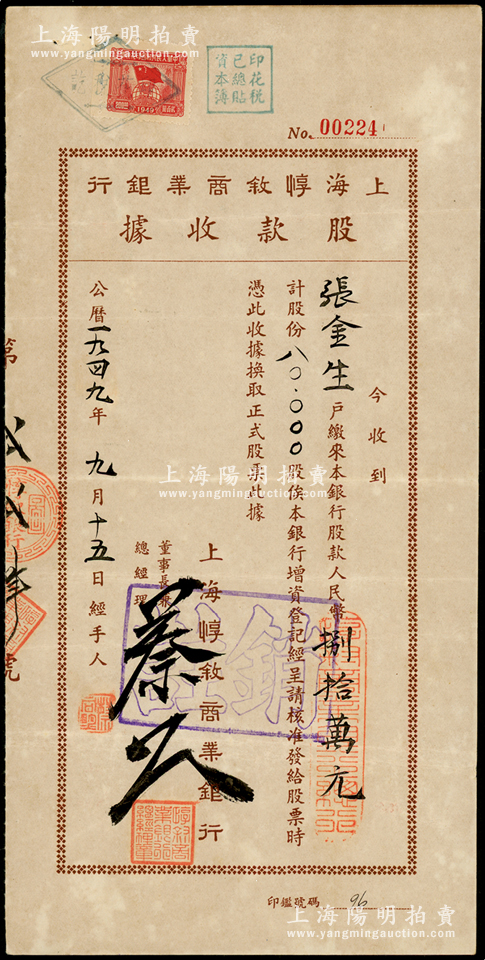 上海陽明拍賣
www.yangmingauction.com
1949
印花税
已總貼
資本簿
No. 00224
上海惇敘商業銀行
股款收據
今收到
張金生 戶繳來本銀行股款人民幣 捌拾萬元
計股份 八〇.〇〇〇 股俟本銀行增資登記經呈請核准發給股票時
憑此收據換取正式股票此據
上海惇敘商業銀行
董事長兼
總經理
公曆一九四九年 九月十五日 經手人
註銷
第
號
印鑑號碼 96
上海陽明拍賣
www.yangmingauction.com
上海陽明拍賣
www.yangmingauction.com